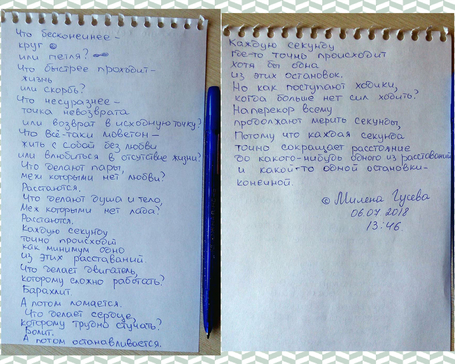 Что бесконечнее –
круг
или петля?
Что быстрее проходит –
жизнь
или скорбь?
Что несуразнее –
точка невозврата
или возврат в исходную точку?
Что всё-таки моветон –
жить с собой без любви
или влюбиться в отсутствие жизни?
Что делают пары,
меж которыми нет любви?
Расстаются.
Что делают душа и тело,
Меж которыми нет лада?
Расстаются.
Каждую секунду
точно происходит
как минимум одно
из этих расставаний
Что делает двигатель,
которому сложно работать?
Барахлит.
А потом ломается.
Что делает сердце,
которому трудно стучать?
Болит.
А потом останавливается.
Каждую секунду
Где-то точно происходит
хотя бы одна
из этих остановок.
Но как поступают ходики,
когда больше нет сил ходить?
Наперекор всему
продолжают мерить секунды,
Потому что каждая секунда
точно сокращает расстояние
до какого-нибудь одного из расставаний
и какой-то одной остановки –
конечной.
© Милена Гусева
06.07.2018
13:46